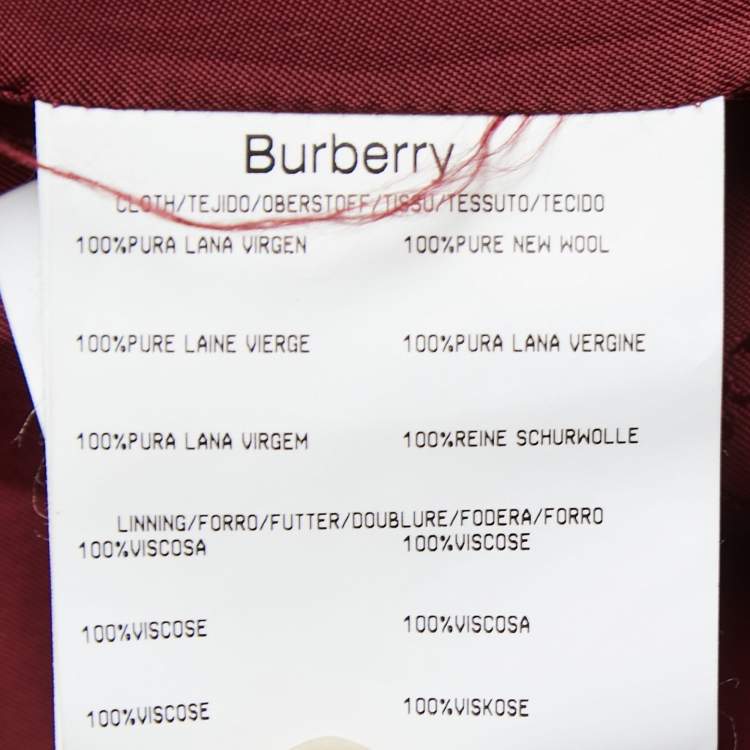 Burberry
CLOTH/TEJIDO/OBERSTOFF/TISSU/TESSUTO/TECIDO
100%PURA LANA VIRGEN 100%PURE NEW WOOL
100%PURE LAINE VIERGE 100%PURA LANA VERGINE
100%PURA LANA VIRGEM 100%REINE SCHURWOLLE
LINNING/FORRO/FUTTER/DOUBLURE/FODERA/FORRO
100%VISCOSA 100%VISCOSE
100%VISCOSE 100%VISCOSA
100%VISCOSE 100%VISKOSE